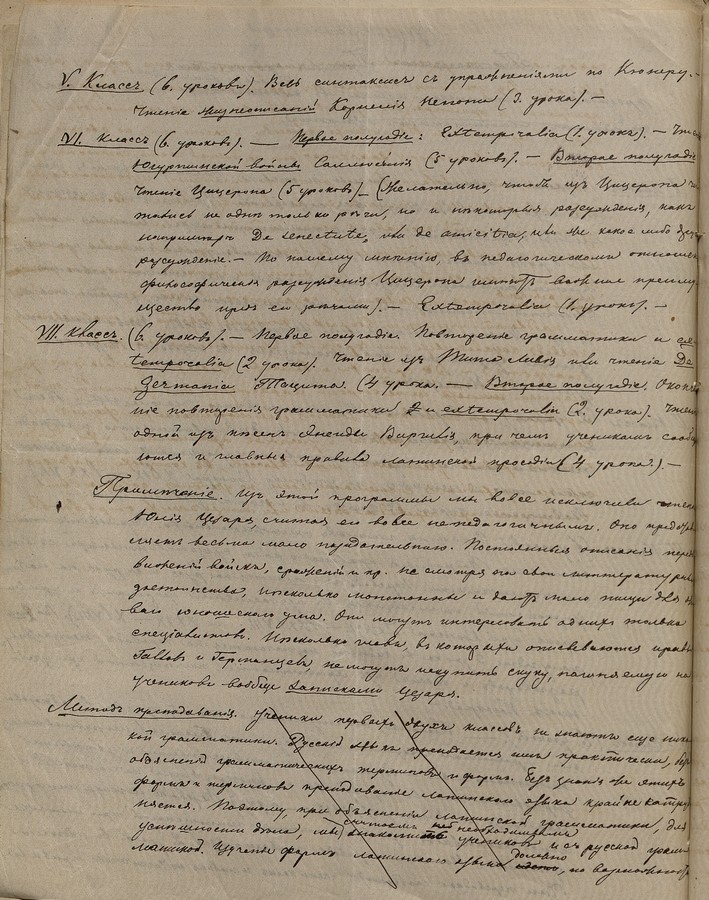 V. Классъ (6. уроковъ). Весь синтаксисъ съ упражненіями по Кюнеру. –
Чтеніе жизнеописаній Корнелія Непота (3. урока). –
VI. Классъ (6. уроковъ). – Первое полугодіе: Extemporalia (1. урокъ). – Чте
Югуртинской войны Саллюстія (5 уроковъ). – Второе полугодіе
Чтеніе Цицерона (5 уроковъ) – (Желательно, чтобъ изъ Цицерона чи
тались не однѣ только рѣчи, но и нѣкоторыя разсужденія, какъ
напримѣръ De senectute, или de amicitia, или же какое либо друг
разсужденіе. – По нашему мнѣнію, въ педагогическомъ отноше
философическія разсужденія Цицерона имѣютъ важное преиму
щество предъ его рѣчами). – Extemporalia (1. урокъ). –
VII. Классъ. (6. уроковъ). – Первое полугодіе. Повтореніе грамматики и ex
temporalia (2 урока). Чтеніе изъ Тита Ливія или чтеніе De
Germania Тацита. (4 урока. – Второе полугодіе. Оконча
ніе повторенія грамматики и extemporalia (2. урока). Чтен
одной изъ пѣсенъ Энеиды Виргилія, при чемъ ученикамъ сообщ
ются и главныя правила латинской просодіи (4 урока.). –
Примѣчаніе. Изъ этой программы мы вовсе исключили чтен
Юлія Цезаря, считая его вовсе не педагогичнымъ. Оно предста
ляетъ весьма мало назидательнаго. Постоянныя описанія пере
движеній войскъ, сраженій и пр. не смотря на свои литературн
достоинства, нѣсколько монотонны и даютъ мало пищи для
ваго юношескаго ума. Они могутъ интересовать однихъ только
спеціалистовъ. Нѣсколько главъ, въ которыхъ описываются нравы
Галловъ и Германцевъ, не могутъ искупить скуку, нагоняемую на
учениковъ вообще Записками Цезаря.
Методъ преподаванія. Ученики первыхъ двухъ классовъ не знаютъ еще ника
кой грамматики. Русскій языкъ преподается имъ практически, безъ
объясненія грамматическихъ терминовъ и формъ. Безъ знанія же этихъ
формъ и терминовъ преподаваніе латинскаго языка крайне затруд
няется. Поэтому, при объясненіи латинской грамматики, для
успѣшности дѣла, мы считаемъ необходимымъ знакомить учениковъ и съ русской грам
матикой. Изученіе формъ латинскаго языка должно, по возможности